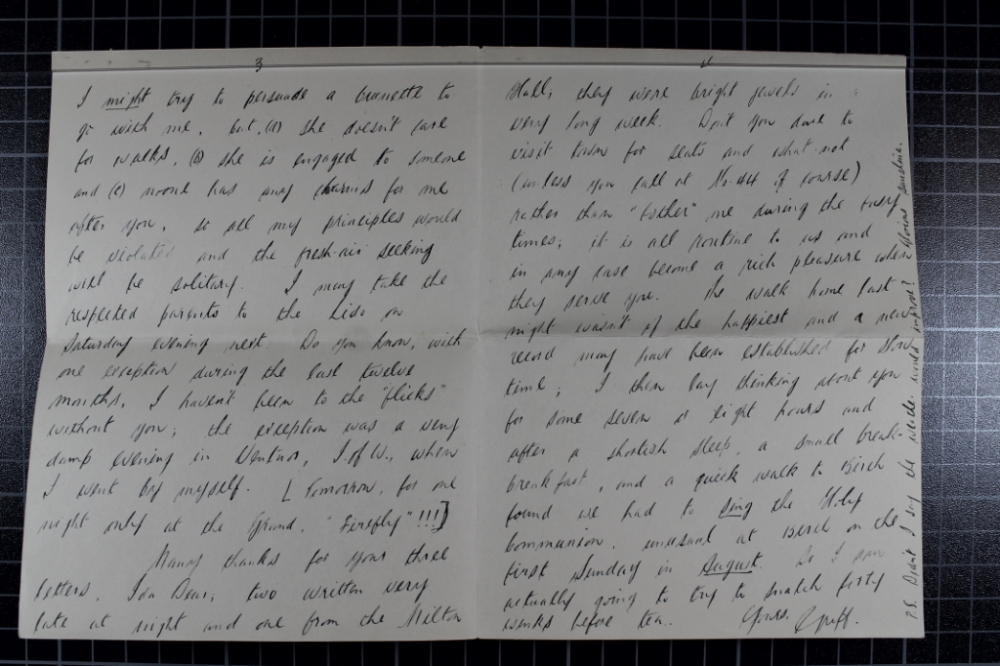 3
I might try to persuade a brunette to
go with me, but, (A) she doesn't care
for walks, (B) she is engaged to someone
and (C) noone has any charms for me
after you, so all my principles would
be violated and the fresh-air seeking
will be solitary. I may take the
respected parents to the Lido on
Saturday evening next. Do you know, with
one exception during the last twelve
months, I haven't been to the "flicks"
without you; the exception was a very
damp evening in Ventnor, I.of W., when
I went by myself. [Tomorrow, for one
night only at the Grand, "Firefly"!!!]
Many thanks for your three
letters, Ida Dear; two written very
late at night and one from the Milton
4
Hall; they were bright jewels in a
very long week. Don't you dare to
visit town for seats and what-not
(unless you call at No.44 of course)
rather than "bother" me during the busy
times; it is all routine to us and
in any case become a rich pleasure when
they serve you. The walk home last
night was of the happiest and a new
record may have been established for slow
time; I then lay thinking about you
for some seven or eight hours and
after a shortish sleep, a small break-
breakfast, and a quick walk to Birch
found we had to sing the Holy
Communion, unusual at Birch on the
first Sunday in August. So I am
actually going to try to snatch forty
winks before tea. Yours, Griff.
P.S. Didn't I say the weather would improve? Glorious sunshine.